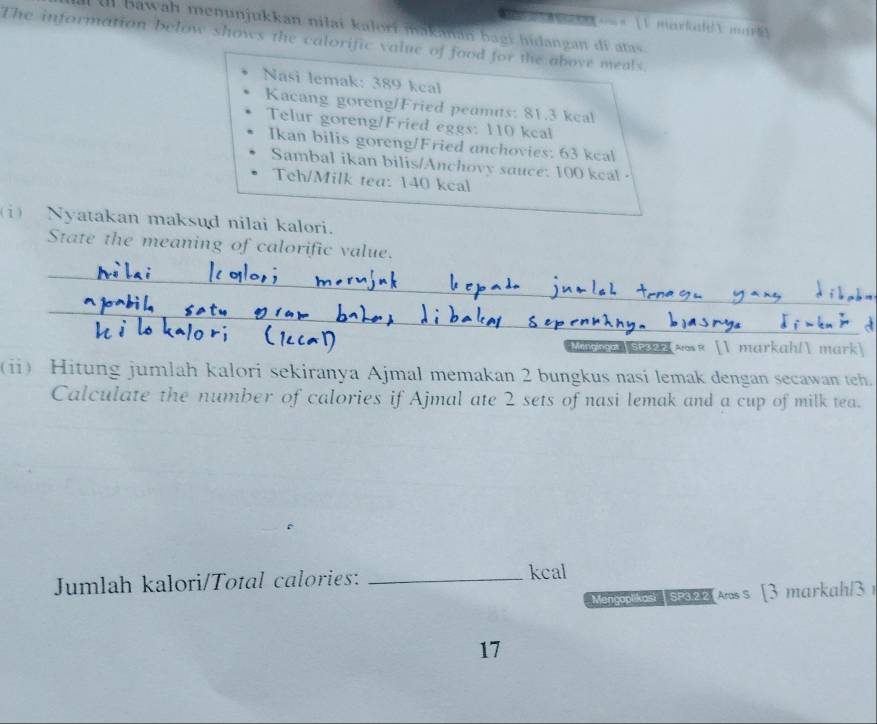 bawah menunjukkan nilai kalori makanan bagi hidangan di atas.
[1 markah/1 mark]
The information below shows the calorific value of food for the above meals.
• Nasi lemak: 389 kcal
• Kacang goreng/Fried peanuts: 81.3 kcal
• Telur goreng/Fried eggs: 110 kcal
• Ikan bilis goreng/Fried anchovies: 63 kcal
• Sambal ikan bilis/Anchovy sauce: 100 kcal
• Teh/Milk tea: 140 kcal
(i) Nyatakan maksud nilai kalori.
State the meaning of calorific value.
nilai kalori merujuk kepada jumlah tenaga yang
apabila satu gram bahan dibakar sepenuhnya biasnya
kilokalori (kcal)
Mengingat SP3.2.2 Aras R [1 markah/1 mark]
(ii) Hitung jumlah kalori sekiranya Ajmal memakan 2 bungkus nasi lemak dengan secawan teh.
Calculate the number of calories if Ajmal ate 2 sets of nasi lemak and a cup of milk tea.
Jumlah kalori/Total calories: ____________ kcal
Mengaplikasi SP3.2.2 Aras S [3 markah/3
17